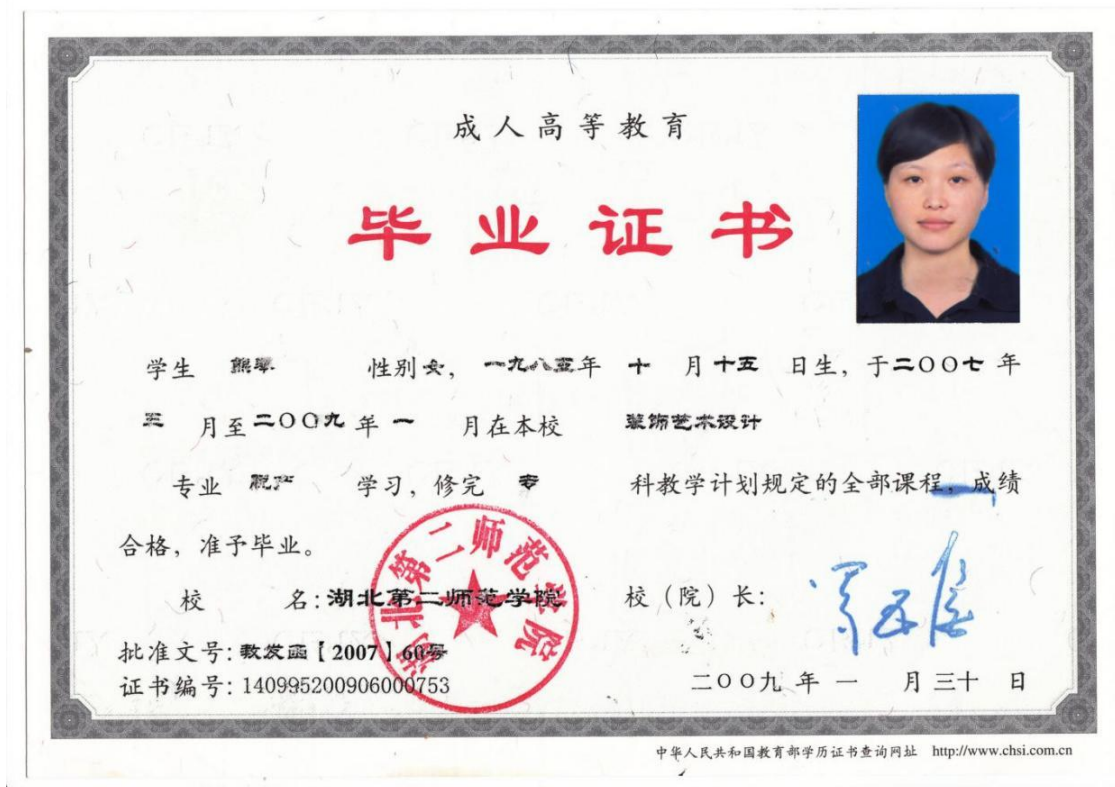 成人高等教育
毕业证书
学生 熊琴 性别女，一九八五年 十 月十五 日生，于二〇〇七 年
三 月至二〇〇九 年 一 月在本校 装饰艺术设计
专业 脱产 学习，修完 专 科教学计划规定的全部课程，成绩
合格，准予毕业。
校 名：湖北第二师范学院 校（院）长：
湖北第二师范学院
批准文号：教发函【2007】60号
证书编号：140995200906000753 二〇〇九 年 一 月 三十 日
中华人民共和国教育部学历证书查询网址 http://www.chsi.com.cn